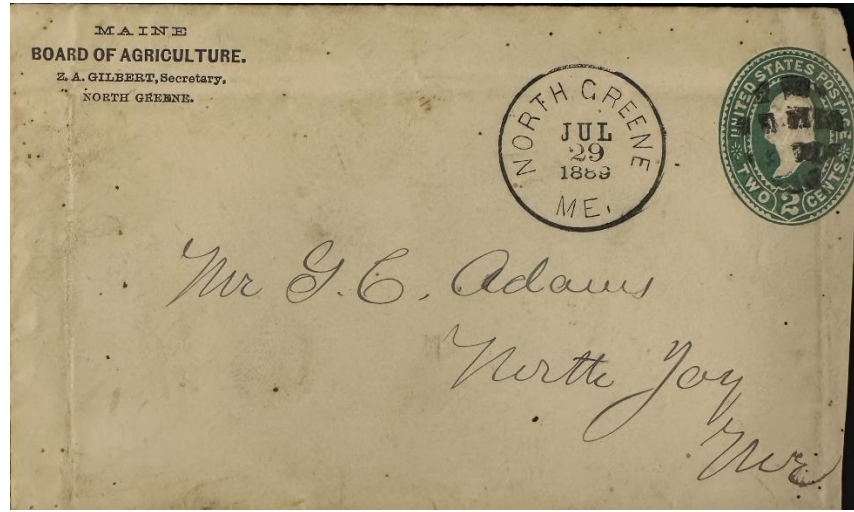 MAINE
BOARD OF AGRICULTURE.
Z. A. GILBERT, Secretary,
NORTH GREENE.
NORTH GREENE
JUL
29
1889
ME.
UNITED STATES POSTAGE
TWO 2 CENTS
Mr G. C. Adams
North Jay
Me